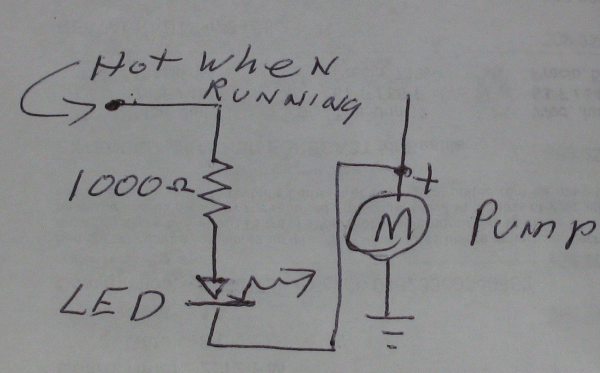 Hot when
RUNNING
1000Ω
+
M
Pump
LED